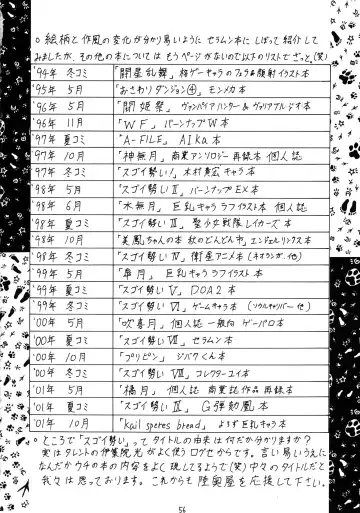 ○ 絵柄と作風の変化が分かり易いようにセラムン本にしぼって紹介して
みましたが、その他の本については もうページがないので以下のリストでざっと。(笑)
'94年 冬コミ 「闘星乱舞」格ゲーキャラのフェラ&顔射イラスト本
'95年 5月 「おさわりダンジョン④」モンメカ本
'96年 5月 「闘姫祭」ヴァンパイアハンター&ヴァリアブルジオ本
'96年 11月 「WF」バーンナップW本
'97年 夏コミ 「A-FILE」AIKa本
'97年 10月 「神無月」商業アンソロジー再録本 個人誌
'97年 冬コミ 「スゴイ勢い!」木村貴広キャラ本
'98年 5月 「スゴイ勢いⅡ」バーンナップEX本
'98年 6月 「水無月」巨乳キャララフイラスト本 個人誌
'98年 夏コミ 「スゴイ勢いⅢ」聖少女戦隊レイカーズ本
'98年 10月 「美鳳ちゃんの本 秋のどんどん市」エンジェルリンクス本
'98年 冬コミ 「スゴイ勢いⅣ」衛星アニメ本(ネオランガ、他)
'99年 5月 「皐月」巨乳キャラ ラフイラスト本
'99年 夏コミ 「スゴイ勢いⅤ」DOA2本
'99年 冬コミ 「スゴイ勢いⅥ」ゲームキャラ本(ソウルキャリバー他)
'00年 5月 「吹喜月」個人誌一般向 ゲーパロ本
'00年 夏コミ 「スゴイ勢いⅦ」セラムン本
'00年 10月 「プリピン」ジバクくん本
'00年 冬コミ 「スゴイ勢いⅧ」コレクターユイ本
'01年 5月 「橘月」個人誌 商業誌作品再録本
'01年 夏コミ 「スゴイ勢いⅨ」G弾動凰本
'01年 10月 「Kail speres bread」よろず巨乳キャラ本
○ ところで「スゴイ勢い」ってタイトルの由来は何だか分かりますか?
実はタレントの伊集院光がよく使うログセからです。言い易いうえに
なんだかウチの本の内容をよく現してるようで(笑)中々のタイトルだと
我々は思っております。これからも 陸奥屋を応援して下さい。
56